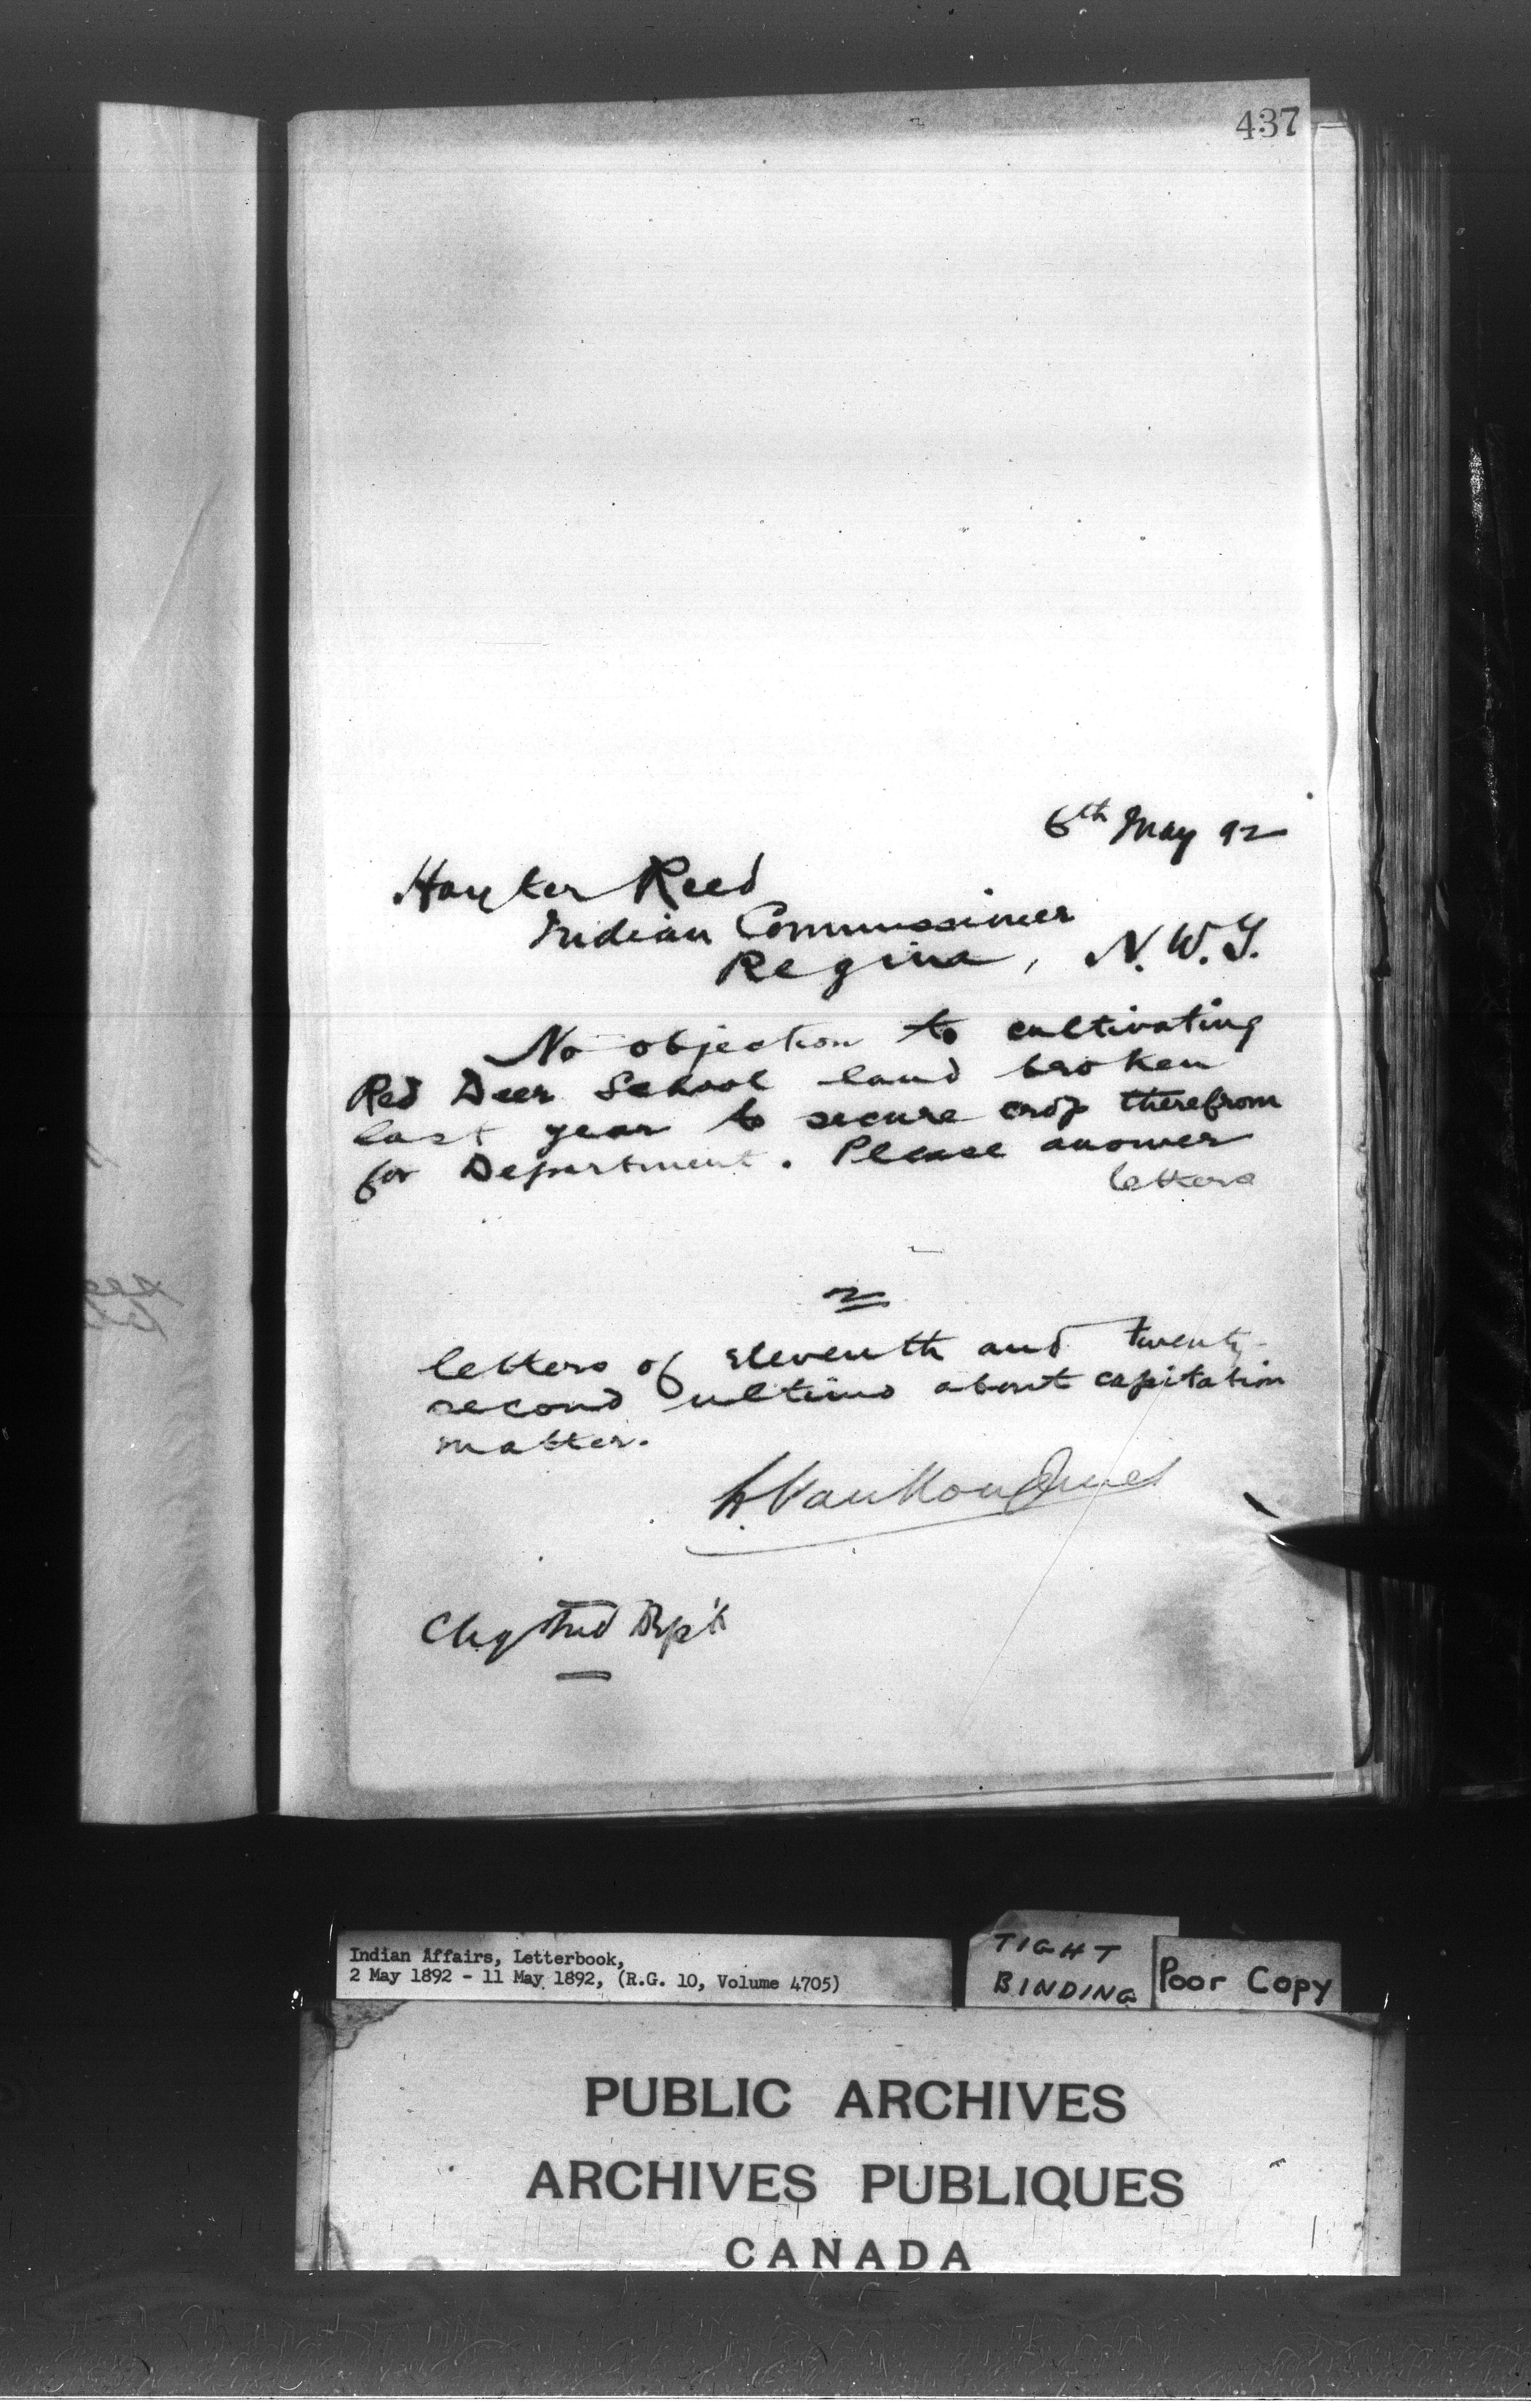 437
6th May 92
Hayter Reed
Indian Commissioner
Regina, N.W.T.
No objection to cultivating
Red Deer School land broken
last year to secure crop therefrom
for Department. Please answer
letters
2
letters of eleventh and twenty-
second ultimo about capitation
matter.
L. VanKoughnet
Chg Ind Dep't
Indian Affairs, Letterbook,
2 May 1892 - 11 May 1892, (R.G. 10, Volume 4705)
TIGHT
BINDING
Poor Copy
PUBLIC ARCHIVES
ARCHIVES PUBLIQUES
CANADA